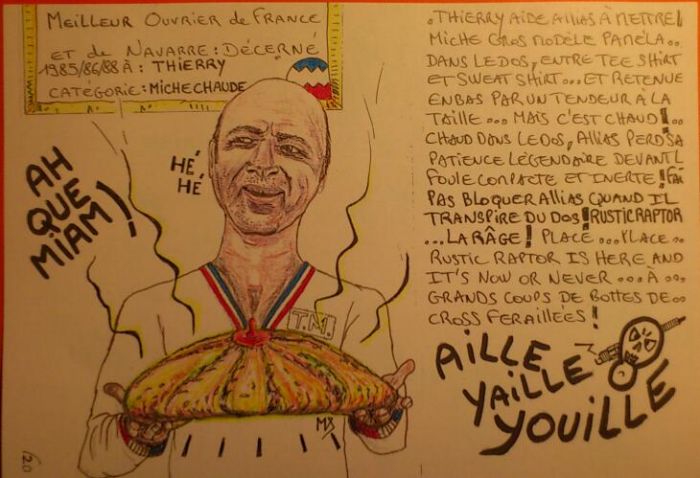 MEILLEUR OUVRIER de FRANCE
ET de NAVARRE : DÉCERNÉ
1985/86/88 À : THIERRY
CATÉGORIE : MICHE CHAUDE
HÉ,
HÉ
AH
QUE
MIAM !
T.M.
MX
120
. THIERRY AIDE ALLIAS À METTRE 1
MICHE GROS MODÈLE PAMÉLA ..
DANS LE DOS, ENTRE TEE SHIRT
ET SWEAT SHIRT ... ET RETENUE
EN BAS PAR UN TENDEUR À LA
TAILLE ... MAIS C'EST CHAUD ! ..
CHAUD DANS LE DOS, ALLIAS PERD SA
PATIENCE LÉGENDAIRE DEVANT L
FOULE COMPACTE ET INERTE ! FAI
PAS BLOQUER ALLIAS QUAND IL
TRANSPIRE DU DOS ! RUSTIC RAPTOR
... LA RÂGE ! PLACE ... PLACE ..
RUSTIC RAPTOR IS HERE AND
IT'S NOW OR NEVER ... À ...
GRANDS COUPS DE BOTTES DE ..
CROSS FERAILLEES !
AILLE
YAILLE
YOUILLE